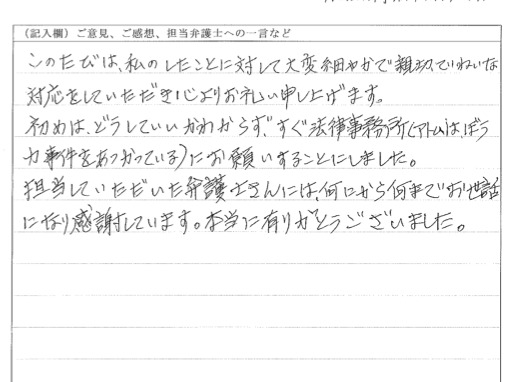 （記入欄）ご意見、ご感想、担当弁護士への一言など
このたびは、私のしたことに対して大変細やかで親切、ていねいな
対応をしていただき心よりお礼い申し上げます。
初めは、どうしていいかわからず、すぐ法律事務所（アトムは、ぼう
力事件をあつかっている）にお願いすることにしました。
担当していただいた弁護士さんには、何にから何までお世話
になり感謝しています。本当に有りがとうございました。